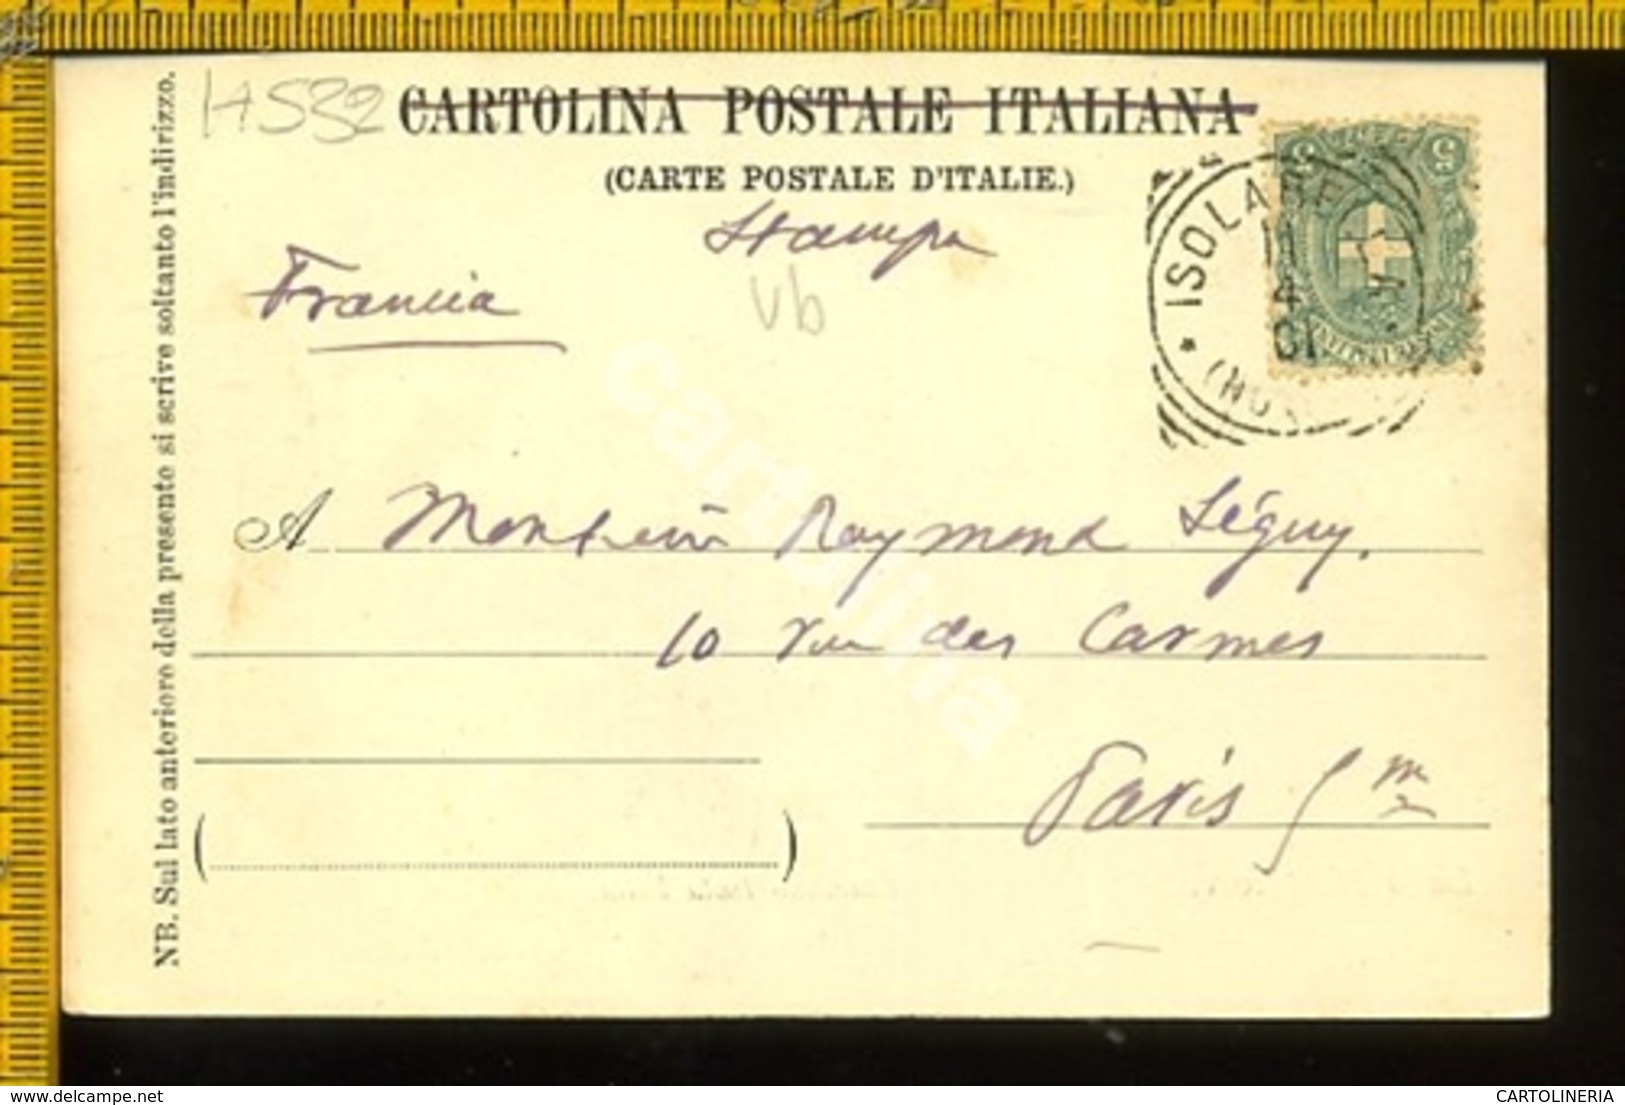 H532
CARTOLINA POSTALE ITALIANA
(CARTE POSTALE D'ITALIE.)
Stampa
Francia
vb
ISOLA
11
4
01
5 5
A Monsieur Raymond Séguy.
10 rue des Carmes
Paris 5 m
NB. Sul lato anteriore della presente si scrive soltanto l'indirizzo.
cartolina
delcampe.net
CARTOLINERIA